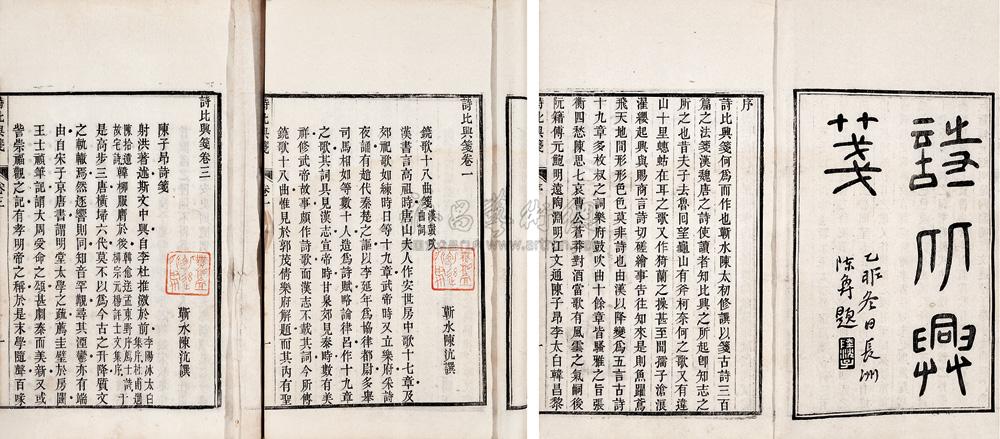 詩比興
箋
乙卯冬日長洲
陳奐題
序
詩比興箋何爲而作也蘄水陳太初修譔以箋古詩三百
篇之法箋漢魏唐之詩使讀者知比興之所起卽知志之
所之也昔夫子去魯回望龜山有斧柯奈何之歌又有違
山十里蟪蛄在耳之歌又作猗蘭之操甚至聞孺子滄浪
濯纓起興與賜商言詩切磋繪事告往知來是則魚躍鳶
飛天地間形形色色莫非詩也由漢以降變爲五言古詩
十九章多枚叔之詞樂府鼓吹曲十餘章皆騷雅之旨張
衡四愁陳思七哀曹公蒼莽對酒當歌有風雲之氣嗣後
阮籍傅元鮑明遠陶淵明江文通陳子昂李太白韓昌黎
詩比興箋 序
詩比興箋卷一
蘄水陳沆譔
鐃歌十八曲箋漢鼓吹曲詞
漢書言高祖時唐山夫人作安世房中歌十七章及
郊祀歌如練時日等十九章武帝時又立樂府采詩
夜誦有趙代秦楚之謳以李延年爲協律都尉多舉
司馬相如等數十人造爲詩賦略論律呂作十九章
之歌其詞具見漢志宣帝時甘泉郊見泰時數有美
祥修武帝故事頗作詩歌而漢志不載其詞今所傳
鐃歌十八曲惟見於郭茂倩樂府解題而其內有聖
詩比興箋 卷一
詩比興箋卷三
蘄水陳沆譔
陳子昂詩箋
射洪著述斯文中興自李杜推激於前
韓柳服膺於後
是高步三唐橫埽六代莫不以爲今古之升降質文
之軌轍焉然逐響則同知音罕觀其湮鬱亦有端
由自宋子京唐書謂明堂太學之疏薦圭璧於房闥
王士禎筆記謂大周受命之頌甚劇秦而美新或
訾崇福觀之記有孝明帝之稱於是末學隨聲百吠
詩比興箋 卷三